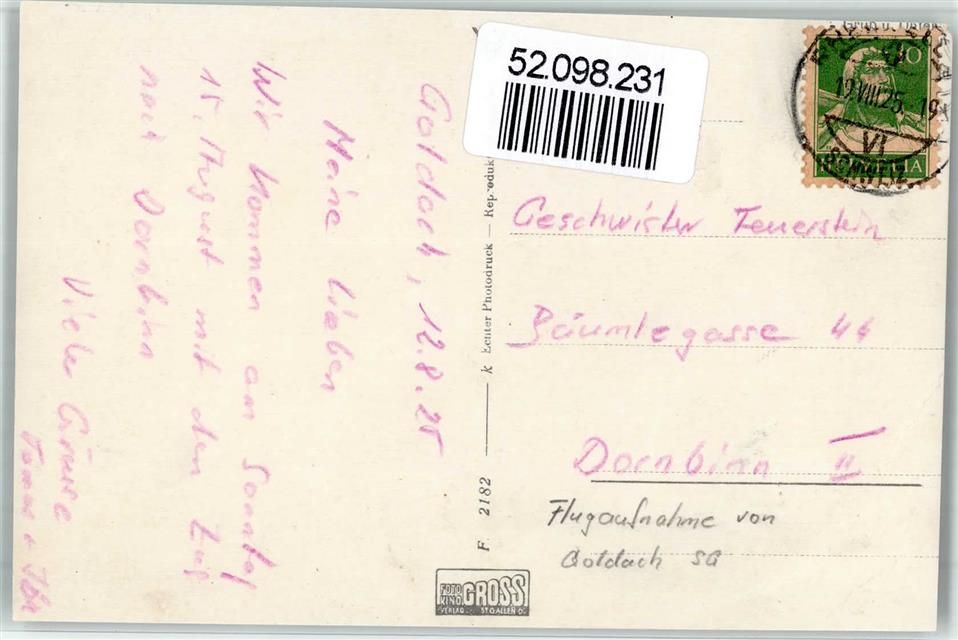 52.098.231
Goldach, 12.8.25
Meine Lieben
Wir kommen am Sonntag
15. August mit den Zug
nach Dornbinn
Viele Grüsse
Geschwister Feuerstein
Bäumlegasse 44
Dornbinn II
Flugaufnahme von
Goldach SG
F 2182
Echter Photodruck — Reproduk
FOTO
KINO GROSS
VERLAG ST. GALLEN O.
10
HELVETIA
12 VIII 25
VI
SCHWEIZ